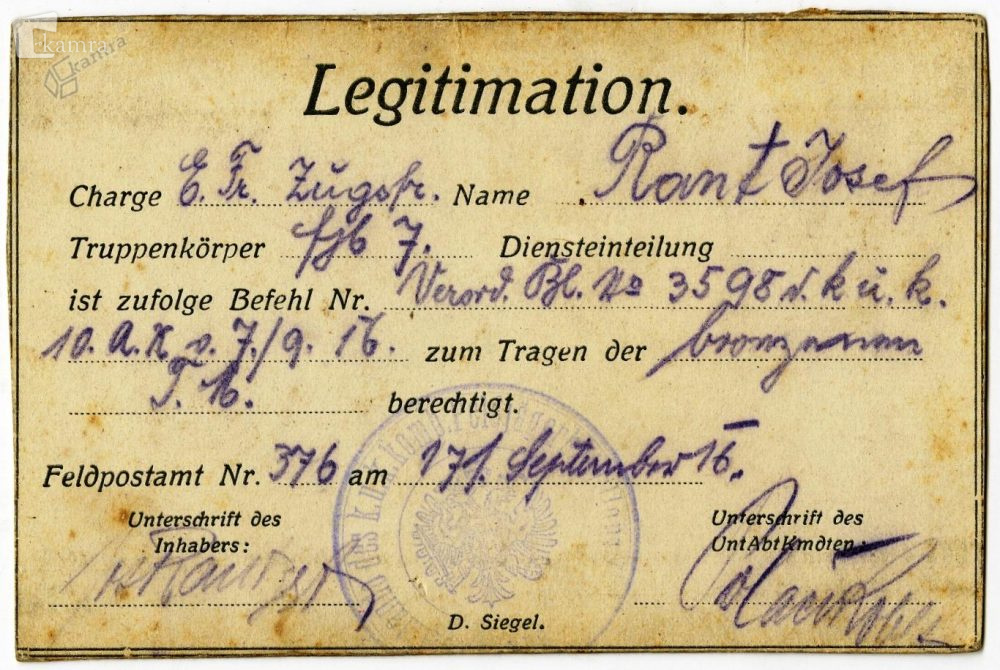 kamra
kamra
Legitimation.
Charge E. Fr. Zugsfr. Name Rant Josef
Truppenkörper fjb 7. Diensteinteilung
ist zufolge Befehl Nr. Verord. Bl. No 3598 d. k. u. k.
10. A. K. v. 7./9. 16. zum Tragen der bronzenen
T. M. berechtigt.
Feldpostamt Nr. 376 am 17/. September 16.
Unterschrift des Inhabers:
Unterschrift des UntAbtKmdten:
D. Siegel.
des k. u. k. komb.